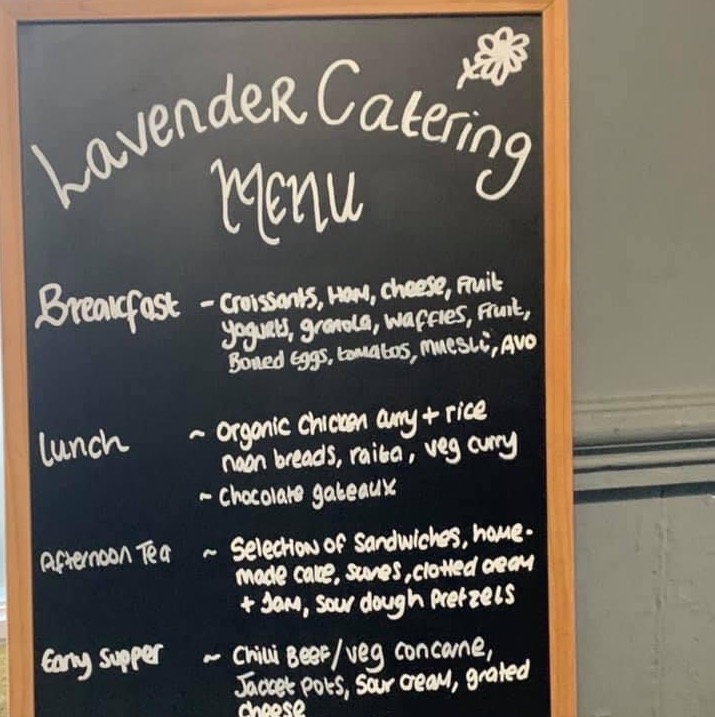 Lavender Catering
MENU
Breakfast - Croissants, Ham, cheese, Fruit
yogurts, granola, waffles, Fruit,
Boiled Eggs, tomatos, muesli, Avo
Lunch ~ Organic Chicken curry + rice
naan breads, raita, veg curry
~ Chocolate gateaux
Afternoon Tea ~ Selection of Sandwiches, home-
made cake, , clotted cream
+ Jam, sour dough Pretzels
Early Supper ~ Chilli Beef/veg concarne,
Jacket Pots, sour cream, grated
cheese